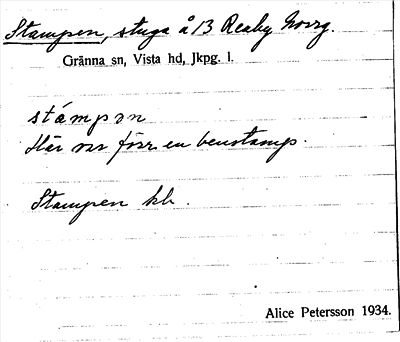 Stampen, stuga å 13 Reaby Norrg.
Gränna sn, Vista hd, Jkpg. l.
stámpən
Här var förr en benstamp.
Stampen kb.
Alice Petersson 1934.